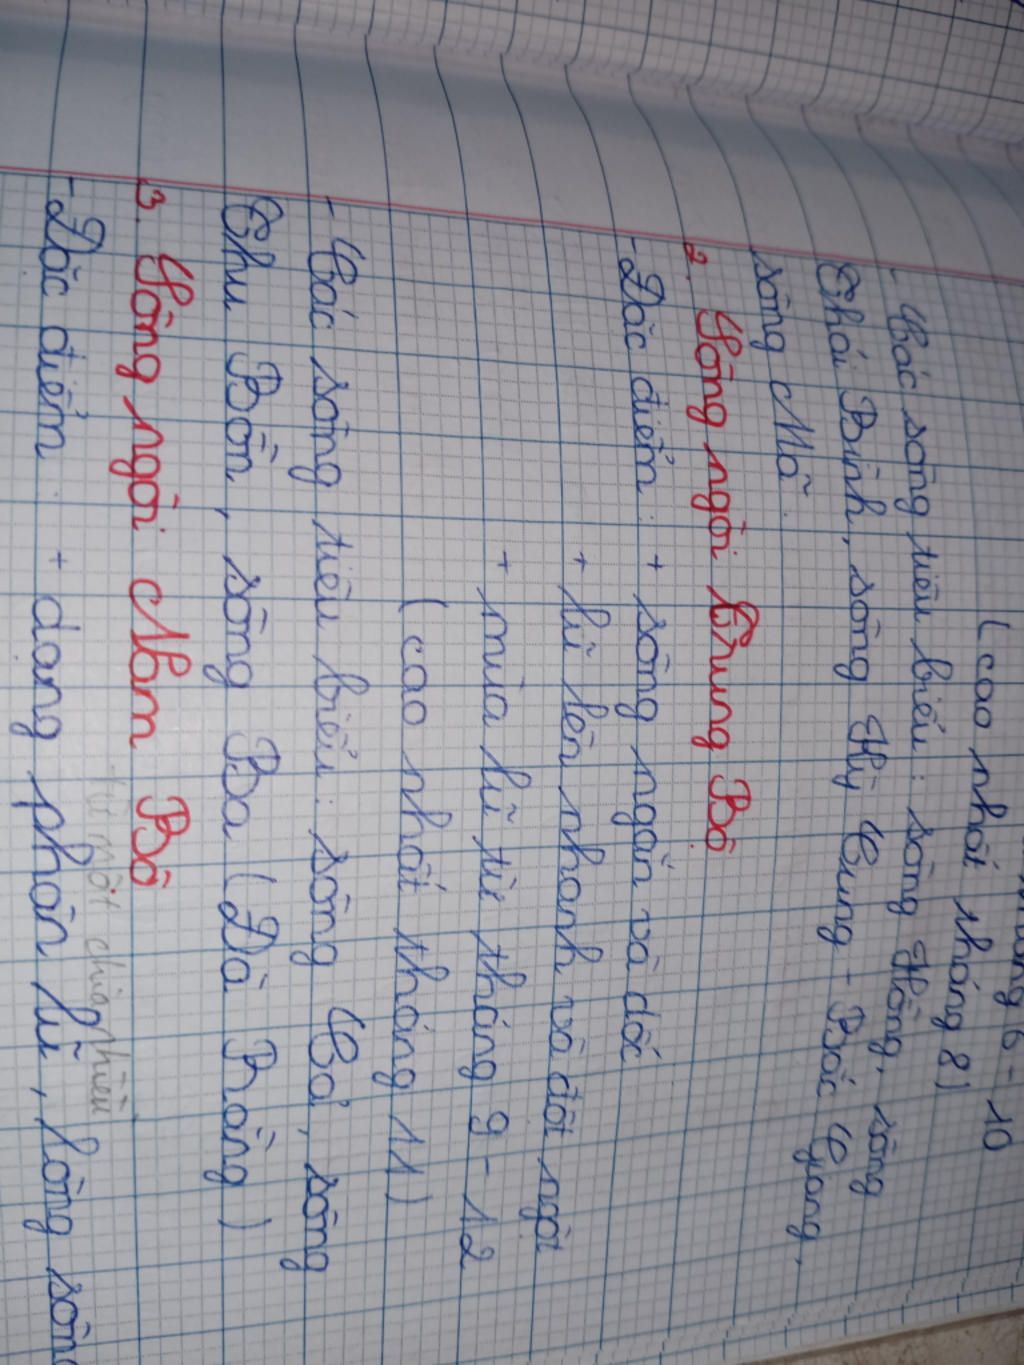 tháng 6 - 10
(cao nhất tháng 8)
- Các sông tiêu biểu: sông Hồng, sông
Thái Bình, sông Kỳ Cùng - Bắc Giang,
sông Mã.
2. Sông ngòi Trung Bộ
- Đặc điểm: + sông ngắn và dốc
+ lũ lên nhanh và đột ngột
+ mùa lũ từ tháng 9 - 12
(cao nhất tháng 11)
- Các sông tiêu biểu: sông Cả, sông
Thu Bồn, sông Ba (Đà Rằng)
3. Sông ngòi Nam Bộ
- Đặc điểm: + dạng phân lũ, lòng sông